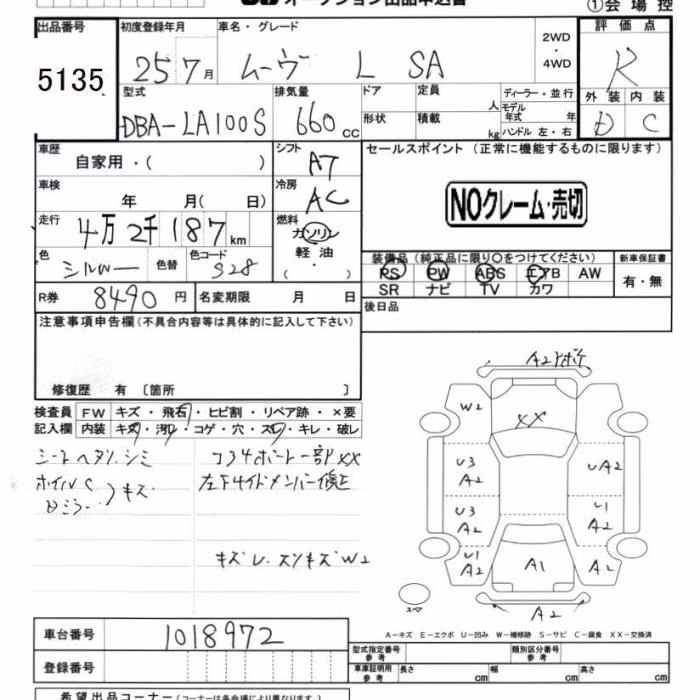 オークション出品申込書
①会場控
出品番号 初度登録年月 車名・グレード 評価点
5135 25 7月 ムーヴ L SA 2WD・4WD R
型式 排気量 ドア 定員 人 ディーラー・並行 外装 内装
DBA-LA100S 660cc 形状 積載 kg モデル年式 年 ハンドル 左・右 D C
車歴 自家用・( ) シフト AT セールスポイント (正常に機能するものに限ります)
車検 年 月( 日) 冷房 AC NOクレーム・売切
走行 4万2千187km 燃料 ガソリン 軽油 ( ・ )
色 シルバー 色替 色コード S28 装備品(純正品に限り○をつけてください) 新車保証書
PS PW ABS エアB AW 有・無
R券 8490円 名変期限 月 日 SR ナビ TV カワ
注意事項申告欄(不具合内容等は具体的に記入して下さい) 後日品
修復歴 有 〔箇所 〕
検査員 FW キズ・飛石・ヒビ割・リペア跡・×要
記入欄 内装 キズ・汚レ・コゲ・穴・スレ・キレ・破レ
シートヘタリ.シミ
ホイルC キズ
Dミラー
コア4ポート一部XX
左F4イドメンバー修正
キズレ.スリキズW2
A2
W2 XX
U3 A2 UA2
U3 A2 U1 A2
U1 A2 A1 A2
スペア A2
A-キズ E-エクボ U-凹み W-補修跡 S-サビ C-腐食 XX-交換済
車台番号 1018972
型式指定番号 参考 類別区分番号 参考
登録番号 車庫証明用 参考 長さ cm 幅 cm 高さ cm
希望出品コーナー(コーナーは各会場で異なります。)